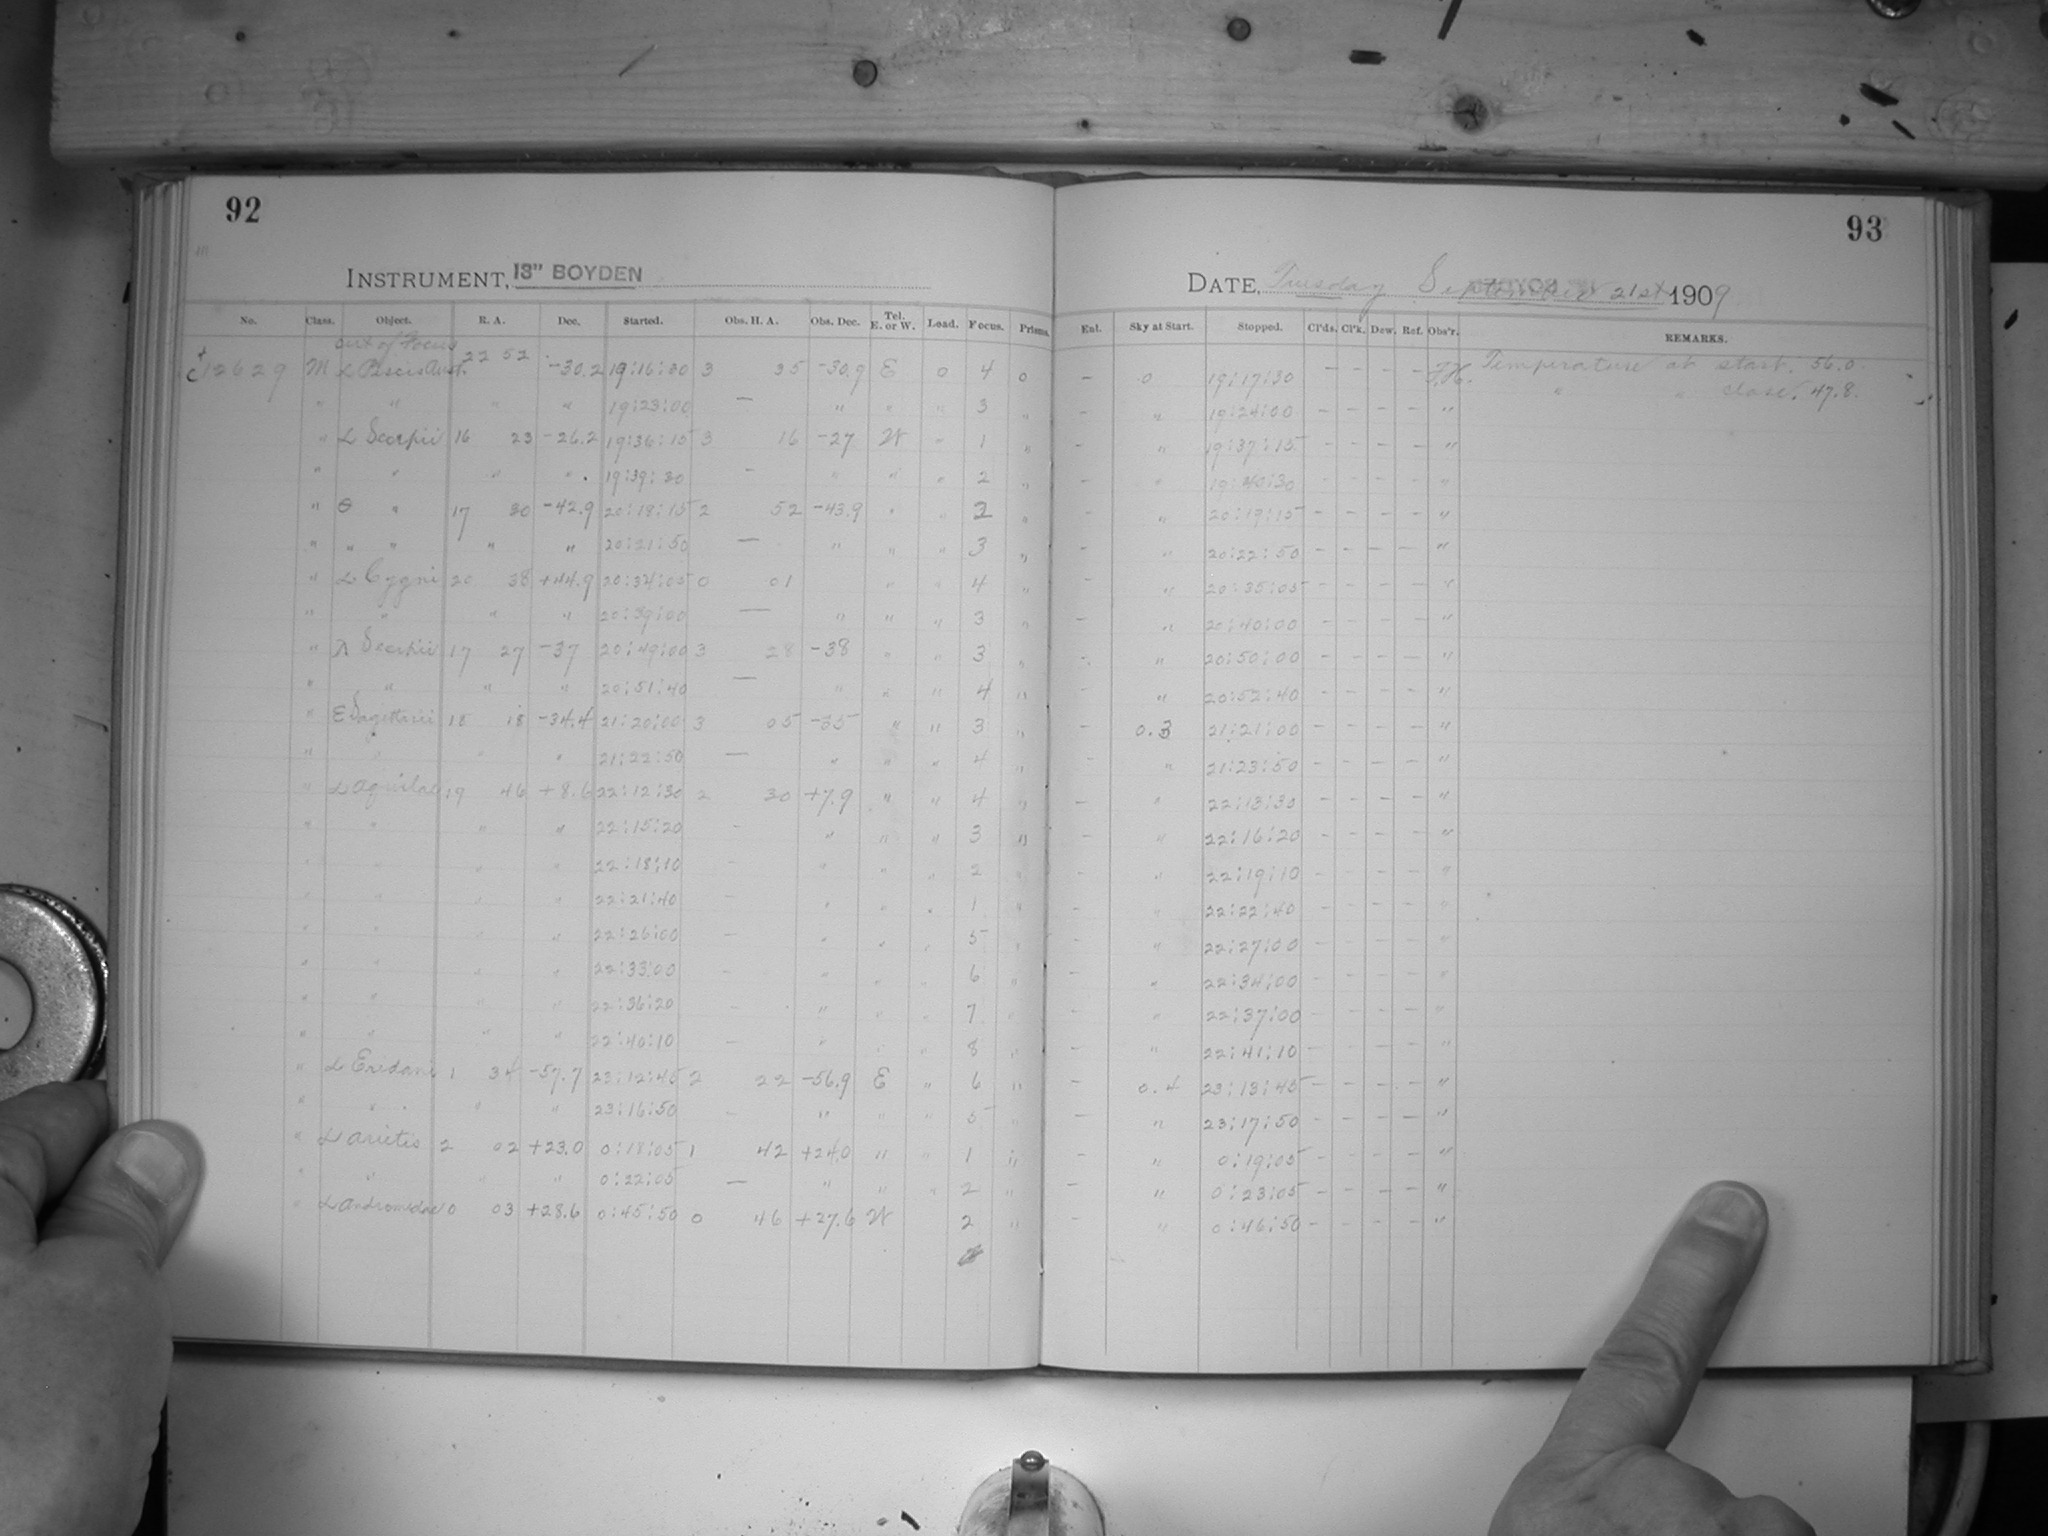 92
INSTRUMENT, 13" BOYDEN
No. Class. Object. R. A. Dec. Started. Obs. H. A. Obs. Dec. Tel. E. or W. Load. Focus. Prisms.
out of Focus
C12629 M α Piscis Aust. 22 52 -30.2 19:16:30 3 35 -30.9 E 0 4 0
" " " " 19:23:00 — " " " 3 "
" α Scorpii 16 23 -26.2 19:36:15 3 16 -27 W " 1 "
" " " " 19:39:30 — " " " 2 "
" θ " 17 30 -42.9 20:18:15 2 52 -43.9 " " 2 "
" " " " " 20:21:50 — " " " 3 "
" α Cygni 20 38 +44.9 20:34:05 0 01 " " 4 "
" " " " 20:39:00 — " " " 3 "
" λ Scorpii 17 27 -37 20:49:00 3 28 -38 " " 3 "
" " " " 20:51:40 — " " " 4 "
" ε Sagittarii 18 18 -34.4 21:20:00 3 05 -35 " " 3 "
" " " " 21:22:50 — " " " 4 "
" α Aquilae 19 46 +8.6 22:12:30 2 30 +7.9 " " 4 "
" " " " 22:15:20 - " " " 3 "
" " " " 22:18:10 - " " " 2 "
" " " " 22:21:40 - " " " 1 "
" " " " 22:26:00 - " " " 5 "
" " " " 22:33:00 - " " " 6 "
" " " " 22:36:20 - " " " 7 "
" " " " 22:40:10 - " " " 8 "
" α Eridani 1 34 -57.7 23:12:45 2 22 -56.9 E " 6 "
" " " " 23:16:50 - " " " 5 "
" α Arietis 2 02 +23.0 0:18:05 1 42 +24.0 " " 1 "
" " " " 0:22:05 — " " " 2 "
" α Andromedae 0 03 +28.6 0:45:50 0 46 +27.6 W 2 "
93
DATE, Tuesday September 21st 1909
Ent. Sky at Start. Stopped. Cl'ds. Cl'k. Dew. Ref. Obs'r. REMARKS.
- 0 19:17:30 - - - - F.H. Temperature at start: 56.0
" " close: 47.8
- " 19:24:00 - - - - "
- " 19:37:15 - - - - "
- " 19:40:30 - - - - "
- " 20:19:15 - - - - "
- " 20:22:50 - - - - "
- " 20:35:05 - - - - "
- " 20:40:00 - - - - "
- " 20:50:00 - - - - "
- " 20:52:40 - - - - "
- 0.3 21:21:00 - - - - "
- " 21:23:50 - - - - "
- " 22:13:30 - - - - "
- " 22:16:20 - - - - "
- " 22:19:10 - - - - "
- " 22:22:40 - - - - "
- " 22:27:00 - - - - "
- " 22:34:00 - - - - "
- " 22:37:00 - - - - "
- " 22:41:10 - - - - "
- 0.4 23:13:45 - - - - "
- " 23:17:50 - - - - "
- " 0:19:05 - - - - "
- " 0:23:05 - - - - "
- " 0:46:50 - - - - "